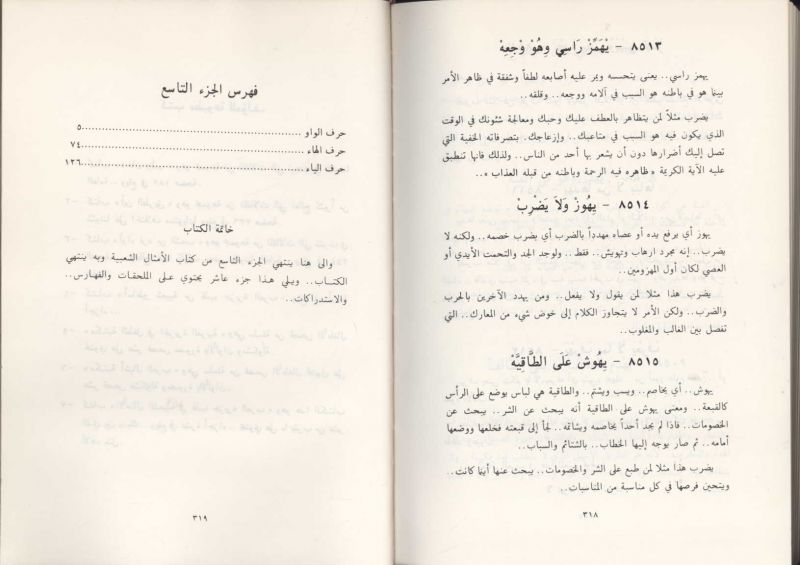 ٨٥١٣ - يْهَمِّزْ رَاسِي وِهُوْ وْجِعِهْ
يهمز راسي.. يعنى يتحسسه ويمر عليه أصابعه لطفاً وشفقة في ظاهر الأمر
بينما هو في باطنه هو السبب في آلامه ووجعه.. وقلقه..
يضرب مثلاً لمن يتظاهر بالعطف عليك وحبك ومعالجة شئونك في الوقت
الذي يكون فيه هو السبب في متاعبك.. وإزعاجك. بتصرفاته الخفية التي
تصل إليك أضرارها دون أن يشعر بها أحد من الناس.. ولذلك فانها تنطبق
عليه الآية الكريمة « ظاهره فيه الرحمة وباطنه من قبله العذاب »..
٨٥١٤ - يِهُوزْ وَلاَ يَضْرِبْ
يهوز أي يرفع يده أو عصاه مهدداً بالضرب أي يضرب خصمه.. ولكنه لا
يضرب.. إنه مجرد ارهاب وتهويش.. فقط.. ولوجد الجد والتحمت الأيدي أو
العصي لكان أول المهزومين..
يضرب هذا مثلا لمن يقول ولا يفعل.. ومن يهدد الآخرين بالحرب
والضرب.. ولكن الأمر لا يتجاوز الكلام إلى خوض شيء من المعارك.. التي
تفصل بين الغالب والمغلوب..
٨٥١٥ - يِهُوشْ عَلَى الطَّاقِيَّهْ
يهوش.. أي يخاصم.. ويسب ويشتم.. والطاقية هي لباس يوضع على الرأس
كالقبعة.. ومعنى يهوش على الطاقية أنه يبحث عن الشر.. يبحث عن
الخصومات.. فاذا لم يجد أحداً يخاصمه ويشاتمه.. لجأ إلى قبعته فخلعها ووضعها
أمامه.. ثم صار يوجه إليها الخطاب.. بالشتائم والسباب..
يضرب هذا مثلا لمن طبع على الشر والخصومات.. يبحث عنها أينما كانت..
ويتحين فرصها في كل مناسبة من المناسبات..
٣١٨
فهرس الجزء التاسع
حرف الواو ..... ٥
حرف الهاء ..... ٧٤
حرف الياء ..... ١٢٦
خاتمة الكتاب
والى هنا ينتهي الجزء التاسع من كتاب الأمثال الشعبية وبه ينتهي
الكتاب.. ويلي هذا جزء عاشر يحتوي على الملحقات والفهارس..
والاستدراكات..
٣١٩